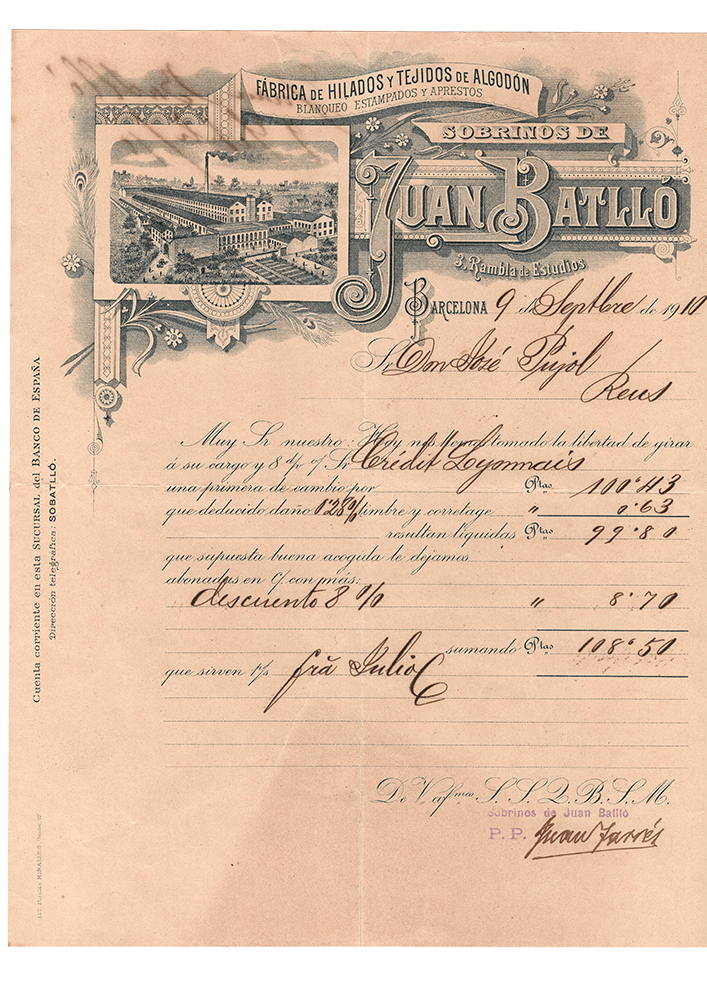 FÁBRICA DE HILADOS Y TEJIDOS DE ALGODÓN
BLANQUEO ESTAMPADOS Y APRESTOS
SOBRINOS DE
JUAN BATLLÓ
3, Rambla de Estudios
BARCELONA 9 de Septbre de 1910
Sr Don José Pujol
Reus
Muy Sr nuestro: Hoy nos hemos tomado la libertad de girar
á su cargo y 8 d/v o/ Sr Crédit Lyonnais
una primera de cambio por Ptas 100'43
que deducido daño 0'28% timbre y corretage " 0'63
resultan líquidas Ptas 99'80
que supuesta buena acogida le dejamos
abonadas en C/ con más:
descuento 8 % " 8'70
sumando Ptas 108'50
que sirven p/s fra Julio
De V. afmos. S. S. Q. B. S. M.
Sobrinos de Juan Batlló
P. P. Juan Farrés
Cuenta corriente en esta SUCURSAL del BANCO DE ESPAÑA
Dirección telegráfica: SOBATLLÓ.
MIRALLES